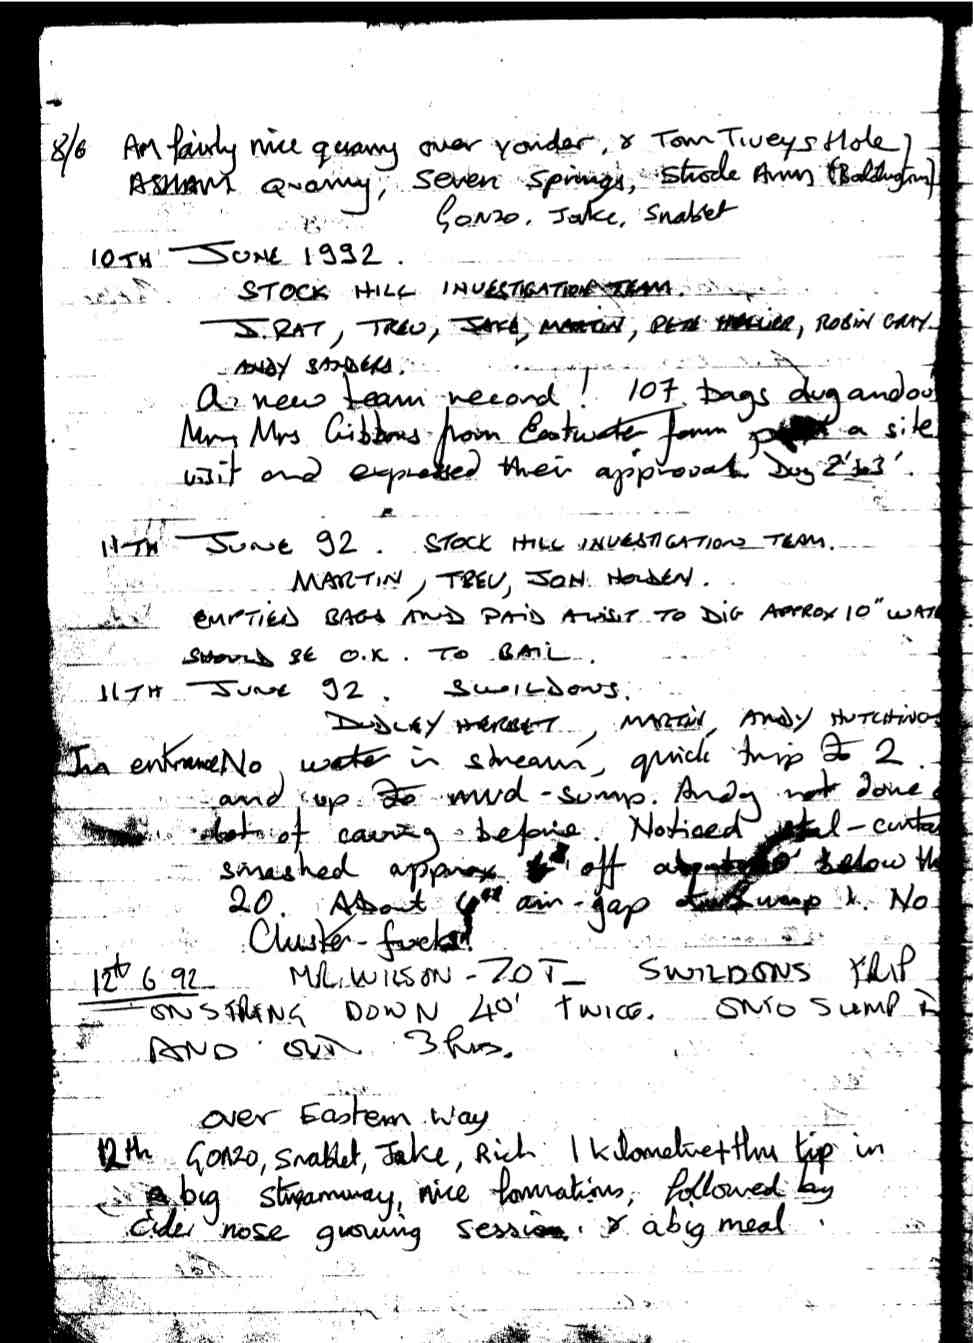 8/6 Am fairly nice quarry over yonder, & Tom Tiveys Hole,
ASHAM Quarry, Seven Springs, Strode Arms
Gonzo, Jake, Snablet
10TH JUNE 1992.
STOCK HILL INVESTIGATION TEAM.
J.RAT, TREV, JAKE, MARTIN, PETE HELLIER, ROBIN GRAY
ANDY SANDERS.
A new team record! 107 bags dug and ou
Mrs Gibbons from Eastwater farm a site
visit and expressed their approval. Dug 2' to 3'.
11TH JUNE 92. STOCK HILL INVESTIGATION TEAM.
MARTIN, TREV, JON HOLDEN.
EMPTIED BAGS AND PAID A VISIT TO DIG APPROX 10" WAT
SHOULD BE O.K. TO BAIL.
11TH JUNE 92. SWILDONS.
DUDLEY HERBERT, MARTIN, ANDY HUTCHINGS
In entrance No water in stream, quick trip to 2
and up to mud-sump. Andy not done a
lot of caving before. Noticed stal-curta
smashed approx off below th
20. About 4" air-gap sump 1. No
Cluster-fucks!
12th 6 92 MR. WILSON - ZOT - SWILDONS TRIP
ON STRING DOWN 40' TWICE. ONTO SUMP I
AND OUT 3 hrs.
over Eastern Way
12th Gonzo, Snablet, Jake, Rich 1 kilometre thru trip in
a big streamway, nice formations, followed by
Cider nose growing session. & a big meal.